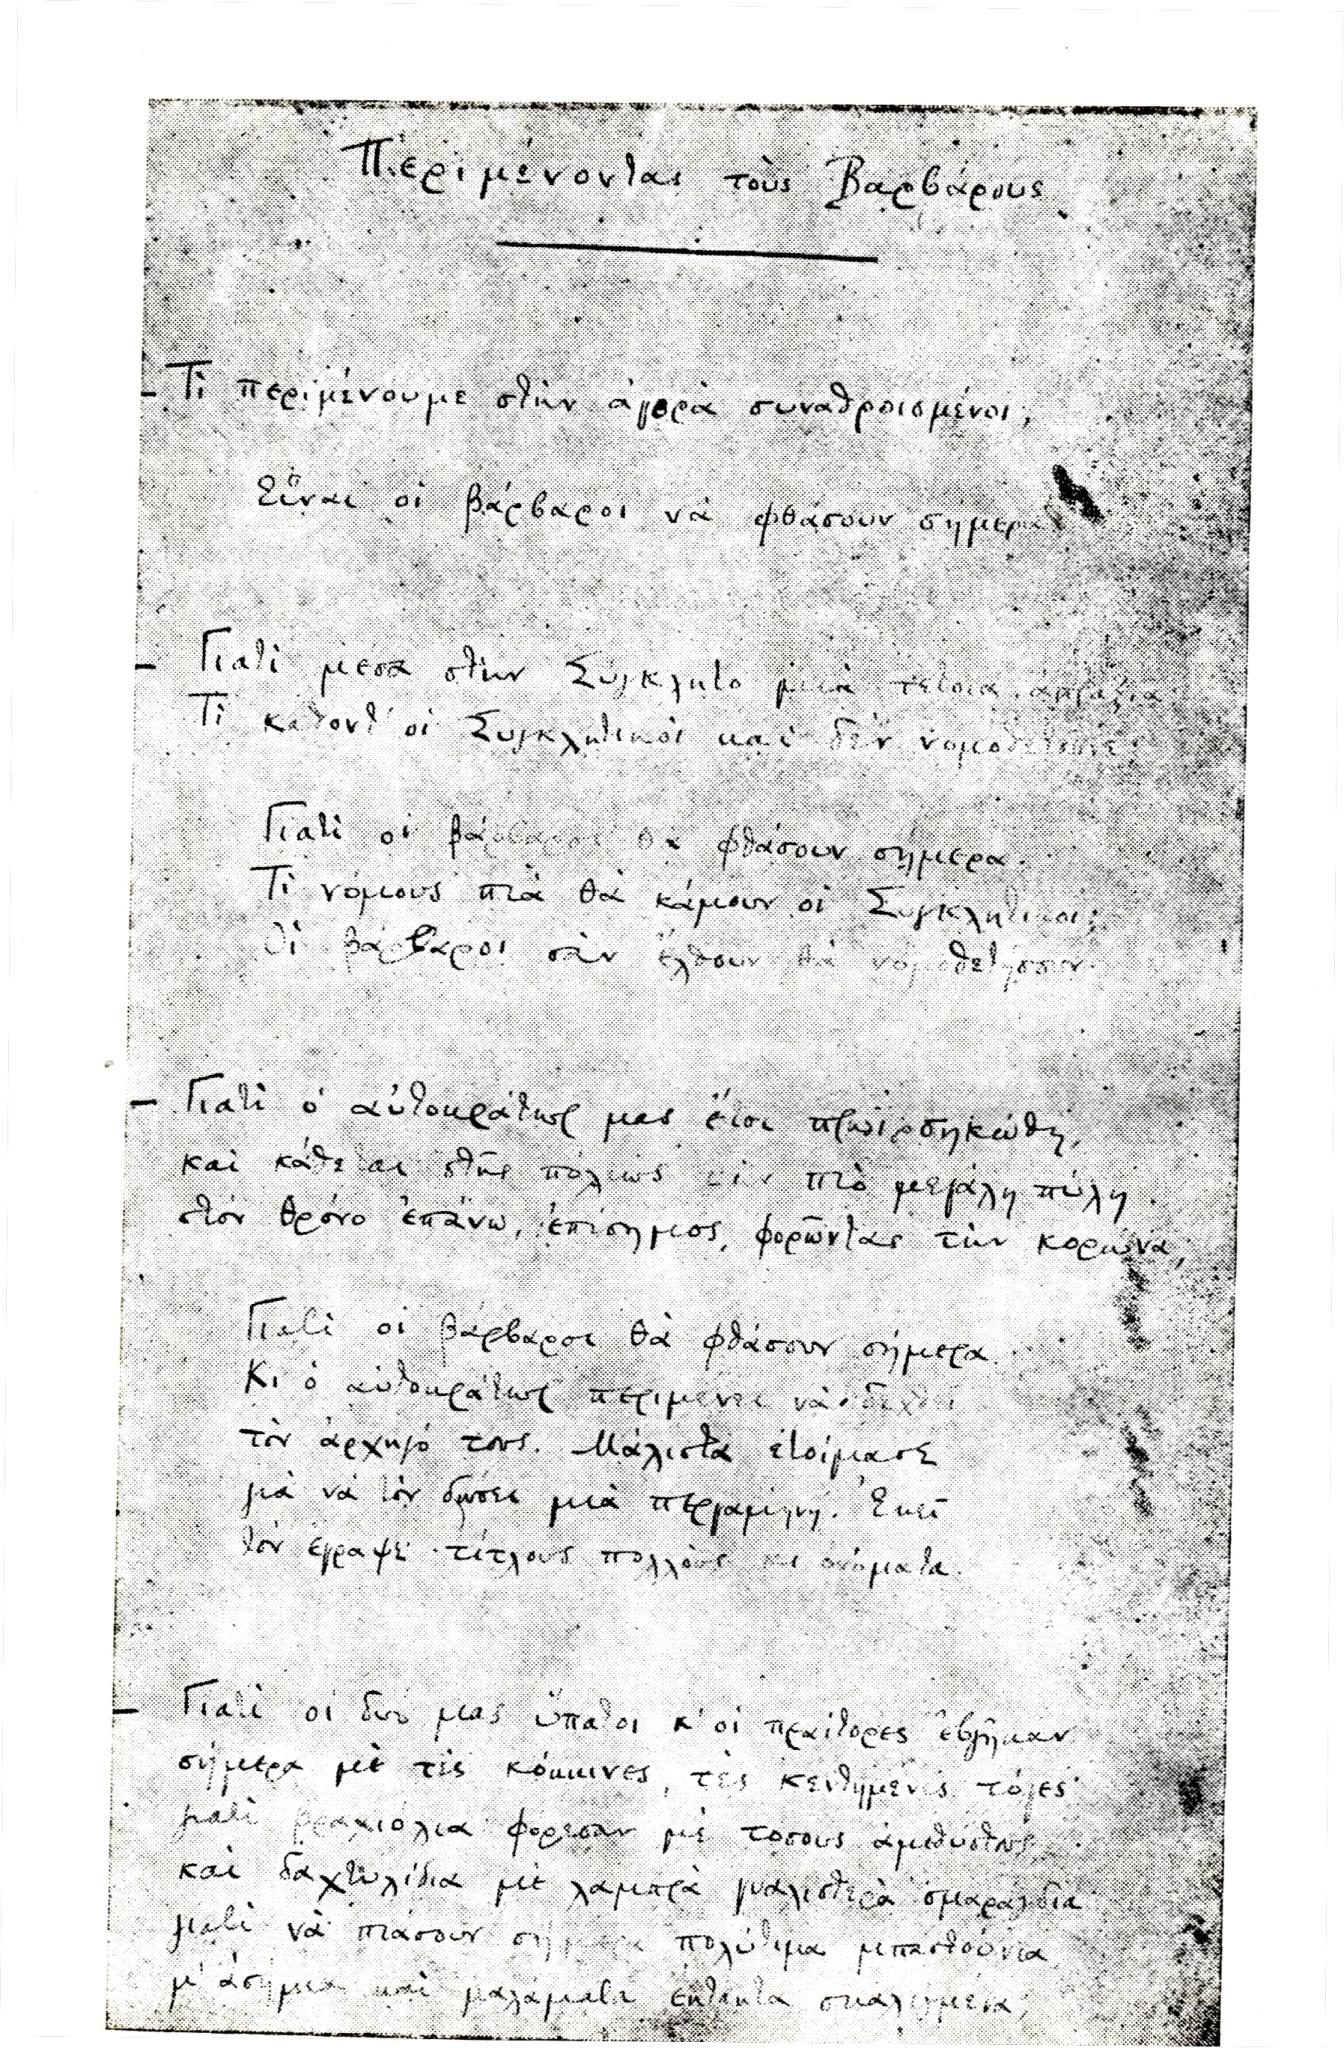 Περιμένοντας τοὺς Βαρβάρους
– Τὶ περιμένουμε στὴν ἀγορὰ συναθροισμένοι;
Εἶναι οἱ βάρβαροι νὰ φθάσουν σήμερα
– Γιατὶ μέσα στὴν Σύγκλητο μιὰ τέτοια ἀπραξία
Τὶ κάθοντ' οἱ Συγκλητικοὶ καὶ δὲν νομοθετοῦνε;
Γιατὶ οἱ βάρβαροι θὰ φθάσουν σήμερα.
Τὶ νόμους πιὰ θὰ κάμουν οἱ Συγκλητικοί;
Οἱ βάρβαροι σὰν ἔλθουν θὰ νομοθετήσουν.
– Γιατὶ ὁ αὐτοκράτωρ μας ἔτσι πρωῒ σηκώθη,
καὶ κάθεται στῆς πόλεως τὴν πιὸ μεγάλη πύλη
στὸν θρόνο ἐπάνω, ἐπίσημος, φορῶντας τὴν κορώνα;
Γιατὶ οἱ βάρβαροι θὰ φθάσουν σήμερα.
Κι ὁ αὐτοκράτωρ περιμένει νὰ δεχθεῖ
τὸν ἀρχηγό τους. Μάλιστα ἑτοίμασε
γιὰ νὰ τὸν δώσει μιὰ περγαμηνή. Ἐκεῖ
τὸν ἔγραψε τίτλους πολλοὺς κι ὀνόματα.
– Γιατὶ οἱ δυό μας ὕπατοι κ' οἱ πραίτορες ἐβγῆκαν
σήμερα μὲ τὲς κόκκινες, τὲς κεντημένες τόγες·
γιατὶ βραχιόλια φόρεσαν μὲ τόσους ἀμεθύστους,
καὶ δαχτυλίδια μὲ λαμπρὰ γυαλιστερὰ σμαράγδια
γιατὶ νὰ πιάσουν σήμερα πολύτιμα μπαστούνια
μ' ἀσήμια καὶ μαλάματα ἔκτακτα σκαλιγμένα;